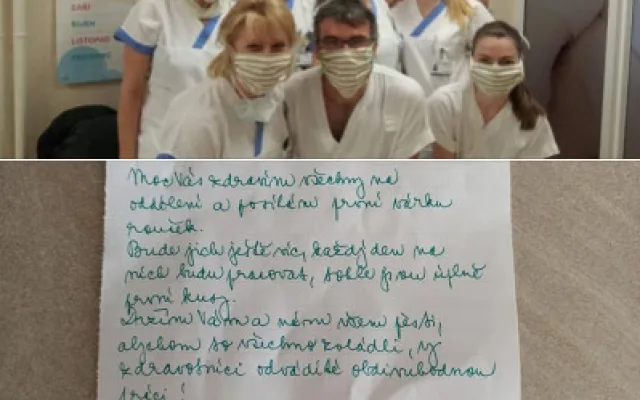 ZÁŘÍ
ŘÍJEN
LISTOPAD
PROSINEC
Moc Vás zdravím všechny na
oddělení a posílám první várku
roušek.
Bude jich ještě víc, každý den na
nich budu pracovat, tohle jsou úplně
první kusy.
Držím Vám a nám všem pěsti,
abychom to všechno zvládli, vy
zdravotníci odvádíte obdivuhodnou
práci!